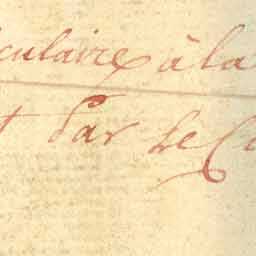 iculaire à la
t Par Le Cu